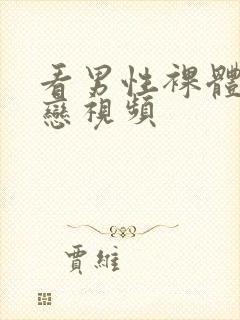 看男性裸體
戀視頻
賈維